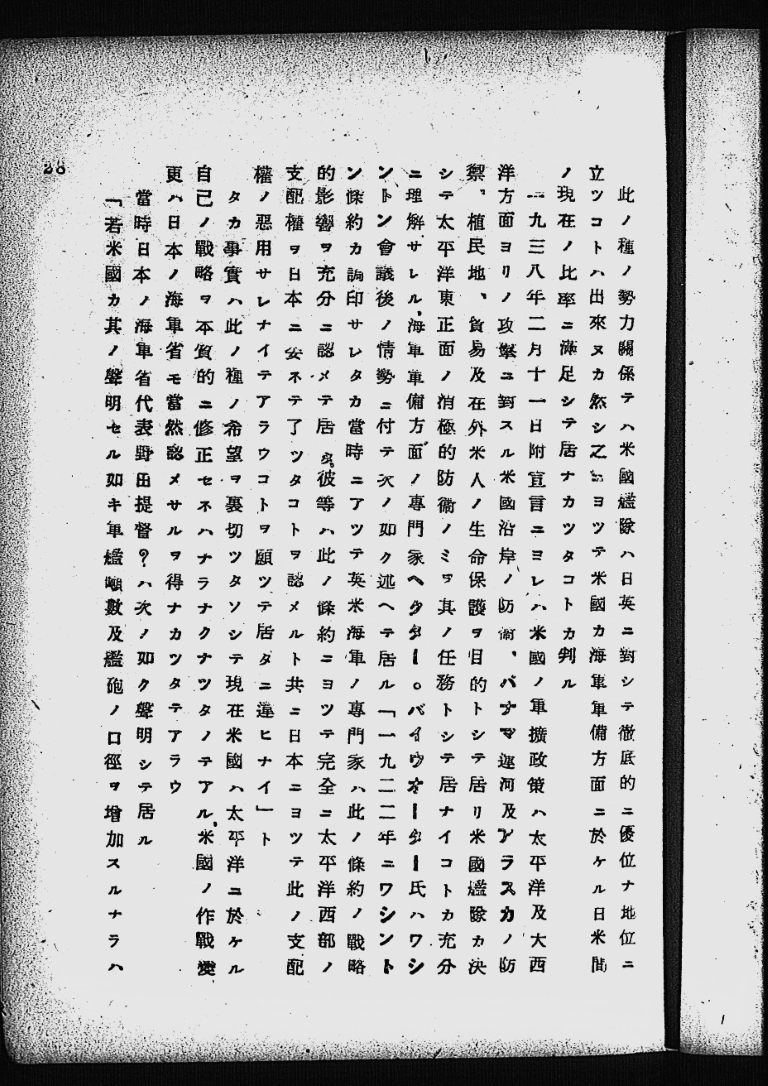 此ノ種ノ勢力關係テハ米國艦隊ハ日英ニ對シテ徹底的ニ優位ナ地位ニ
立ツコトハ出來ヌカ然シ之ニヨツテ米國カ海軍軍備方面ニ於ケル日米間
ノ現在ノ比率ニ滿足シテ居ナカツタコトカ判ル
一九三八年二月十一日附宣言ニヨレハ米國ノ軍擴政策ハ太平洋及大西
洋方面ヨリノ攻擊ニ對スル米國沿岸ノ防衞、パナマ運河及アラスカノ防
禦、植民地、貿易及在外米人ノ生命保護ヲ目的トシテ居リ米國艦隊カ決
シテ太平洋東正面ノ消極的防衞ノミヲ其ノ任務トシテ居ナイコトカ充分
ニ理解サレル、海軍軍備方面ノ專門家ヘクター。バイウオーター氏ハワシ
ントン會議後ノ情勢ニ付テ次ノ如ク述ヘテ居ル「一九二二年ニワシント
ン條約カ調印サレタカ當時ニアツテ英米海軍ノ專門家ハ此ノ條約ノ戰略
的影響ヲ充分ニ認メテ居タ、彼等ハ此ノ條約ニヨツテ完全ニ太平洋西部ノ
支配權ヲ日本ニ委ネテ了ツタコトヲ認メルト共ニ日本ニヨツテ此ノ支配
權ノ惡用サレナイテアラウコトヲ願ツテ居タニ違ヒナイ」ト
タカ事實ハ此ノ種ノ希望ヲ裏切ツタソシテ現在米國ハ太平洋ニ於ケル
自己ノ戰略ヲ本質的ニ修正セネハナラナクナツタノテアル、米國ノ作戰變
更ハ日本ノ海軍省モ當然認メサルヲ得ナカツタテアラウ
當時日本ノ海軍省代表野田提督?ハ次ノ如ク聲明シテ居ル
「若米國カ其ノ聲明セル如キ軍艦噸數及艦砲ノ口徑ヲ增加スルナラハ
28